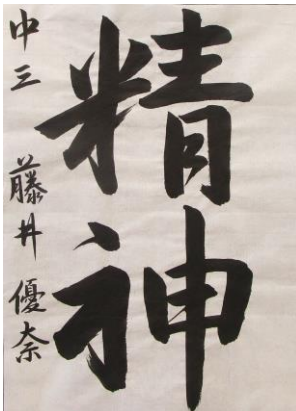 精神
中三 藤井優奈